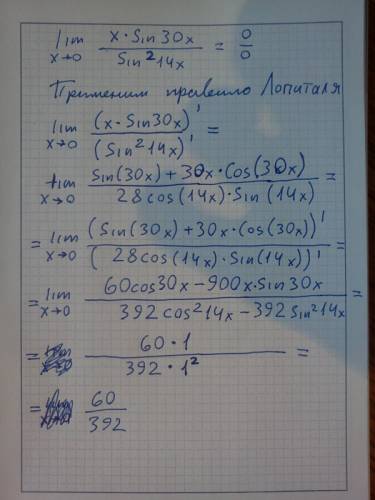 lim x→0 x·Sin30x / Sin²14x = 0/0
Применим правило Лопиталя
lim x→0 (x·Sin30x)' / (Sin²14x)' =
lim x→0 Sin(30x)+30x·Cos(30x) / 28cos(14x)·Sin(14x) =
= lim x→0 (Sin(30x)+30x·Cos(30x))' / (28cos(14x)·Sin(14x))' =
= lim x→0 60cos30x-900x·Sin30x / 392cos²14x-392Sin²14x =
= 60·1 / 392·1² =
= 60/392